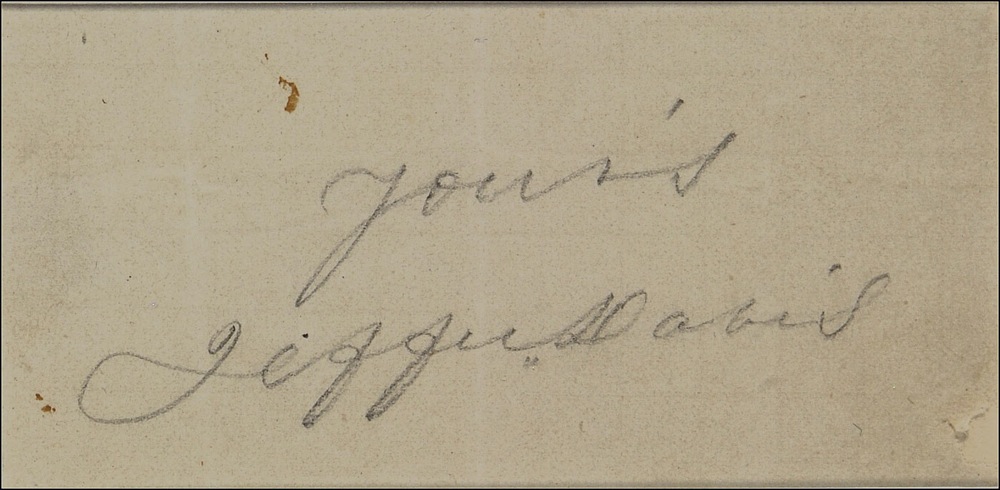 your's
Jeffn Davis